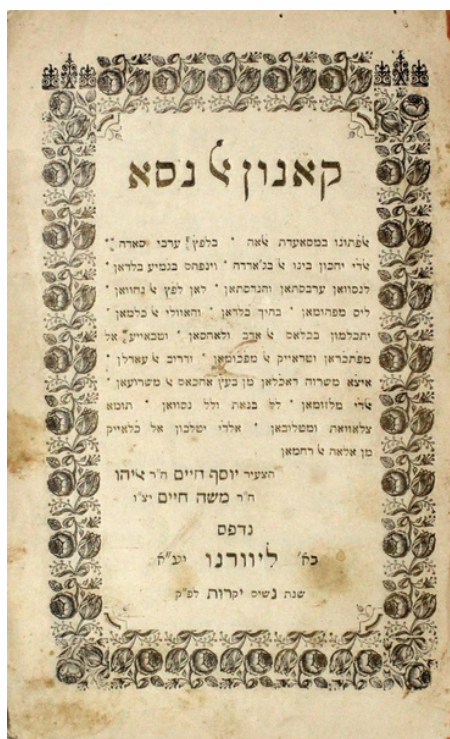 קאנון ﭏ נסא
ﭏפתונו במסאעדת ﭏאה * בלפץ' ערבי סאדה *
ﭏדי יחכון בינו ﭏ בג'דאדה * וינפהם בגמיע בלדאן *
לנסוואן ערבסתאן והנדסתאן * לאן לפץ ﭏ נחוואן *
ליס מפהומאן * בהיך בלדאן * והאוולי ﭏ כלמאן *
יתכלמון בכלאם ﭏ ארב ולאחסאן * וטבאייע אל
מפתכראן וטראייק ﭏ מפכומאן * ודרוב ﭏ עאדלן *
איצא משרוח דאכלאן מן בעץ אחכאם ﭏ משרועאן *
ﭏדי מלזומאן * לל בנאת ולל נסוואן * תומא
צלאוואת ומטלובאן * אלדי יטלבון אל כלאייק
מן אלאה ﭏ רחמאן
הצעיר יוסף חיים ח"ר ﭏיהו
ח"ר משה חיים יצ"ו
נדפס
בא' ליוורנו יע"א
שנת נשים יקרות לפ"ק